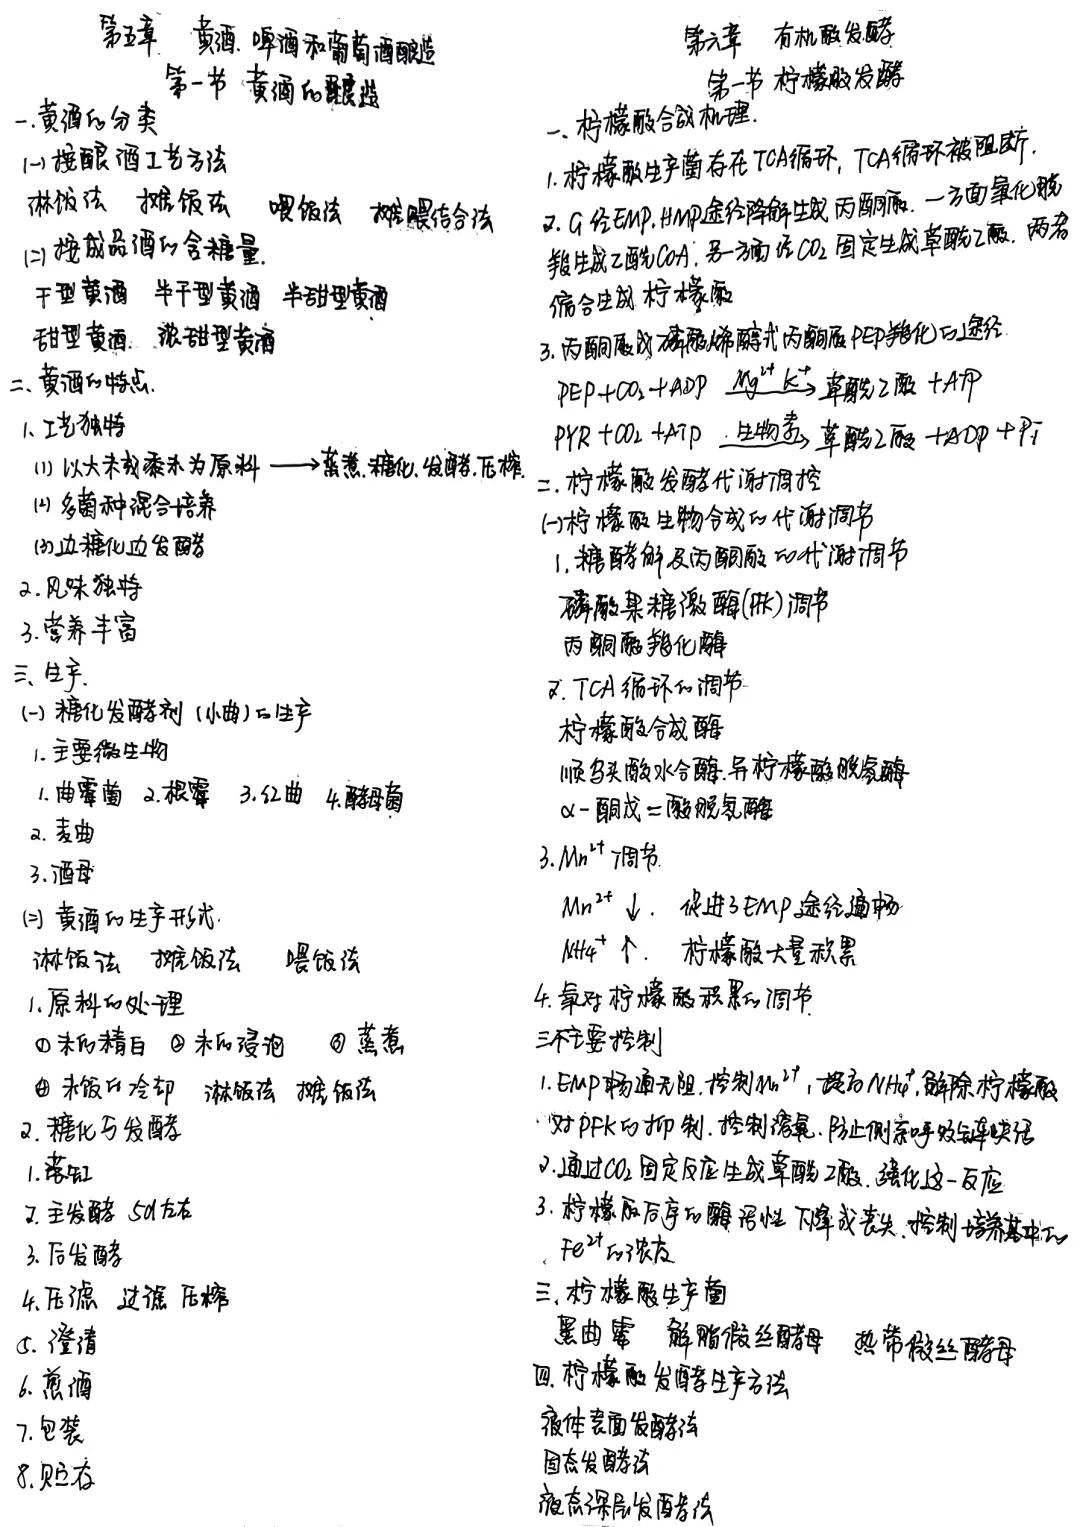 第五章 黄酒、啤酒和葡萄酒酿造
第一节 黄酒的酿造
一.黄酒的分类
(一)按酿酒工艺方法
淋饭法 摊饭法 喂饭法 摊喂结合法
(二)按成品酒的含糖量.
干型黄酒 半干型黄酒 半甜型黄酒
甜型黄酒 浓甜型黄酒
二、黄酒的特点.
1、工艺独特
(1) 以大米或黍米为原料 ⟶ 蒸煮.糖化.发酵.压榨
(2) 多菌种混合培养
(3) 边糖化边发酵
2.风味独特
3.营养丰富
三、生产.
(一) 糖化发酵剂(小曲)的生产
1.主要微生物
1.曲霉菌 2.根霉 3.红曲 4.酵母菌
2.麦曲
3.酒母
(二) 黄酒的生产形式.
淋饭法 摊饭法 喂饭法
1.原料的处理
① 米的精白 ② 米的浸泡 ③ 蒸煮
④ 米饭的冷却 淋饭法 摊饭法
2.糖化与发酵
1.落缸
2.主发酵 5d左右
3.后发酵
4.压滤 过滤 压榨
5.澄清
6.煎酒
7.包装
8.贮存
第六章 有机酸发酵
第一节 柠檬酸发酵
一、柠檬酸合成机理.
1.柠檬酸生产菌存在TCA循环,TCA循环被阻断.
2.G经EMP.HMP途径降解生成丙酮酸.一方面氧化脱
羧生成乙酰CoA.另一方面经CO2固定生成草酰乙酸.两者
偏合生成柠檬酸
3.丙酮酸或磷酸烯醇式丙酮酸PEP羧化的途径.
PEP+CO2+ADP Mg2+ K+→ 草酰乙酸+ATP
PYR+CO2+ATP 生物素→ 草酰乙酸+ADP+Pi
二.柠檬酸发酵代谢调控
(一)柠檬酸生物合成的代谢调节
1.糖酵解及丙酮酸的代谢调节
磷酸果糖激酶(PFK)调节
丙酮酸羧化酶
2.TCA循环的调节
柠檬酸合成酶
顺乌头酸水合酶.异柠檬酸脱氢酶
α-酮戊二酸脱氢酶
3.Mn2+调节.
Mn2+ ↓. 促进了EMP途径通畅
NH4+ ↑. 柠檬酸大量积累
4.氧对柠檬酸积累的调节.
三个主要控制
1.EMP畅通无阻.控制Mn2+,提高NH4+,解除柠檬酸
对PFK的抑制.控制溶氧.防止侧系呼吸链缺活
2.通过CO2固定反应生成草酰乙酸.强化这一反应
3.柠檬酸后序的酶活性下降或丧失.控制培养基中的
Fe2+的浓度
三、柠檬酸生产菌
黑曲霉 解脂假丝酵母 热带假丝酵母
四.柠檬酸发酵生产方法
液体表面发酵法
固态发酵法
液态深层发酵法